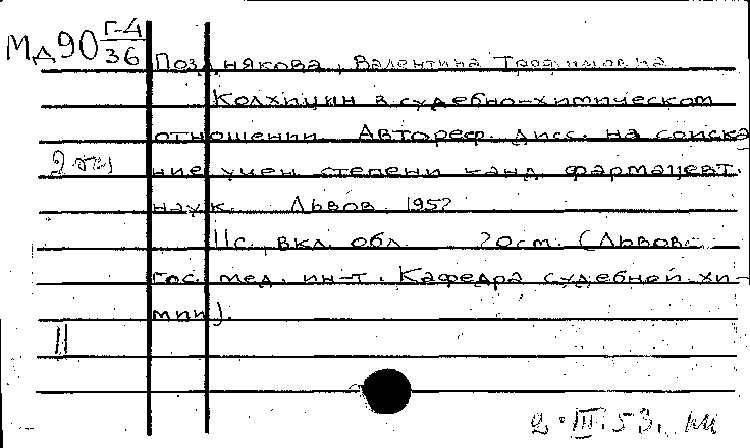 Мд90 Г-4/36
Позднякова, Валентина Трофимовна
Колхицин в судебно-химическом
отношении. Автореф. дисс. на соиска
ние учен. степени канд. фармацевт.
наук. Львов. 1952
11с., вкл. обл. 20см. (Львовс.
гос. мед. ин-т. Кафедра судебной хи-
мии).
2 экз
11
2.III.53.